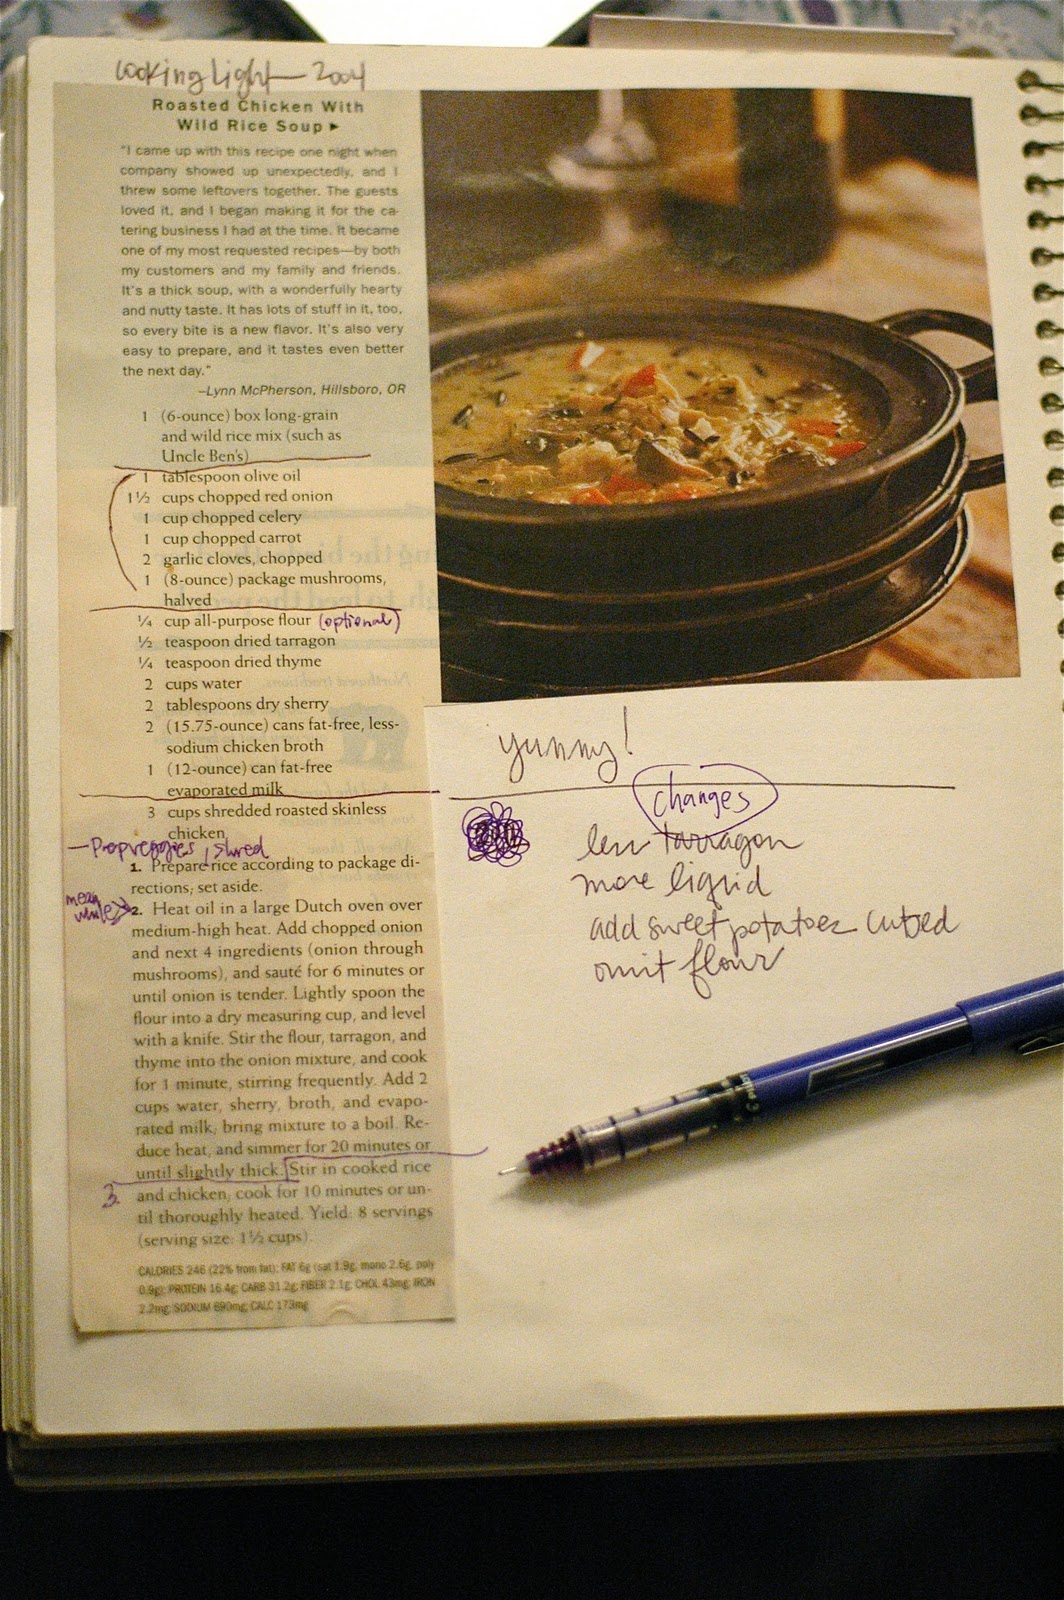 cooking light — 2004
Roasted Chicken With
Wild Rice Soup ▸
"I came up with this recipe one night when
company showed up unexpectedly, and I
threw some leftovers together. The guests
loved it, and I began making it for the ca-
tering business I had at the time. It became
one of my most requested recipes—by both
my customers and my family and friends.
It's a thick soup, with a wonderfully hearty
and nutty taste. It has lots of stuff in it, too,
so every bite is a new flavor. It's also very
easy to prepare, and it tastes even better
the next day."
–Lynn McPherson, Hillsboro, OR
1 (6-ounce) box long-grain
and wild rice mix (such as
Uncle Ben's)
1 tablespoon olive oil
1½ cups chopped red onion
1 cup chopped celery
1 cup chopped carrot
2 garlic cloves, chopped
1 (8-ounce) package mushrooms,
halved
¼ cup all-purpose flour (optional)
½ teaspoon dried tarragon
¼ teaspoon dried thyme
2 cups water
2 tablespoons dry sherry
2 (15.75-ounce) cans fat-free, less-
sodium chicken broth
1 (12-ounce) can fat-free
evaporated milk
3 cups shredded roasted skinless
chicken
— Prep veggies, shred
1. Prepare rice according to package di-
rections; set aside.
mean
while
2. Heat oil in a large Dutch oven over
medium-high heat. Add chopped onion
and next 4 ingredients (onion through
mushrooms), and sauté for 6 minutes or
until onion is tender. Lightly spoon the
flour into a dry measuring cup, and level
with a knife. Stir the flour, tarragon, and
thyme into the onion mixture, and cook
for 1 minute, stirring frequently. Add 2
cups water, sherry, broth, and evapo-
rated milk; bring mixture to a boil. Re-
duce heat, and simmer for 20 minutes or
until slightly thick. Stir in cooked rice
3. and chicken; cook for 10 minutes or un-
til thoroughly heated. Yield: 8 servings
(serving size: 1½ cups).
CALORIES 246 (22% from fat); FAT 6g (sat 1.9g, mono 2.6g, poly
0.9g); PROTEIN 16.4g; CARB 31.2g; FIBER 2.1g; CHOL 43mg; IRON
2.2mg; SODIUM 690mg; CALC 173mg
yummy!
changes
less tarragon
more liquid
add sweet potatoes cubed
omit flour
PILOT